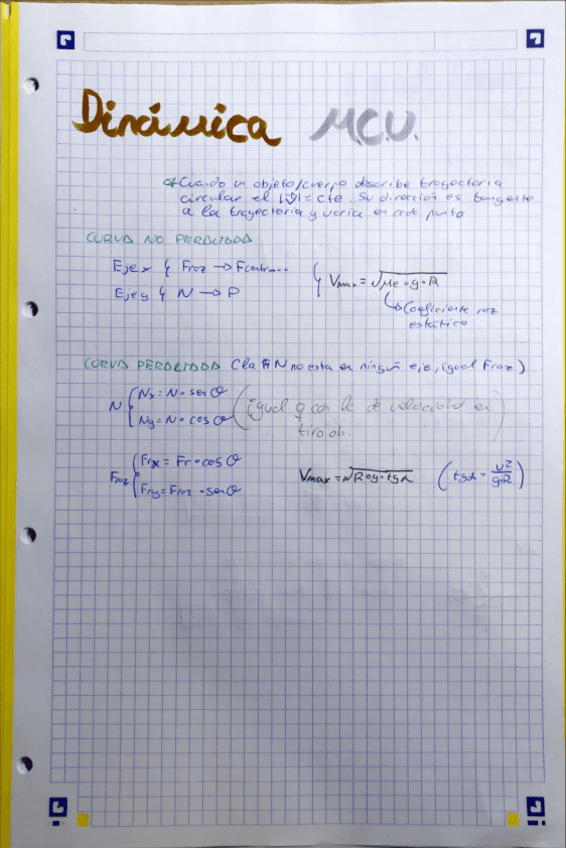 Dinámica M.C.U.
Cuando un objeto/cuerpo describe trayectoria
circular el |v⃗| = cte. Su dirección es tangente
a la trayectoria y varía en cada punto
CURVA NO PERALTADA
Eje x { Froz → Fcentr...
Eje y { N → P
{ Vmax = √μe·g·R
↳ Coeficiente roz
estático
CURVA PERALTADA (la N no esta en ningún eje, igual Froz)
N { Nx = N · sen θ
Ny = N · cos θ
(igual q con la de velocidad en
tiro ob.)
Froz { Frx = Fr · cos θ
Fry = Froz · sen θ
Vmax = √R·g·tgα (tgα = v²/g·R)